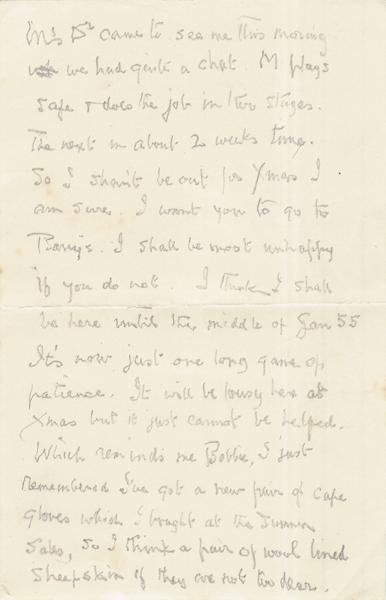 M's Dr came to see me this morning
we had quite a chat. M plays
safe & does the job in two stages.
The next in about 2 weeks time.
So I shan't be out for Xmas I
am sure. I want you to go to
I shall be most unhappy
if you do not. I think I shall
be here until the middle of Jan 55
It's now just one long game of
patience. It will be lousy here at
Xmas but it just cannot be helped.
Which reminds me Bobbie, I just
remembered I've got a new pair of cape
gloves which I bought at the Summer
Sales, so I think a pair of wool lined
sheepskin if they are not too dear.